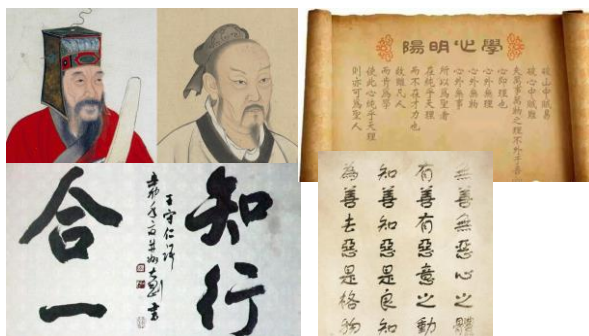 陽明心學
破山中賊易
破心中賊難
夫萬事萬物之理不外乎吾
心即理也
心外無理
心外無物
心外無事
所以爲聖者
在純乎天理
而不在才力也
故雖凡人
而肯爲學
使此心純乎天理
則亦可爲聖人
知行
合一
王守仁語
無善無惡心之體
有善有惡意之動
知善知惡是良知
為善去惡是格物